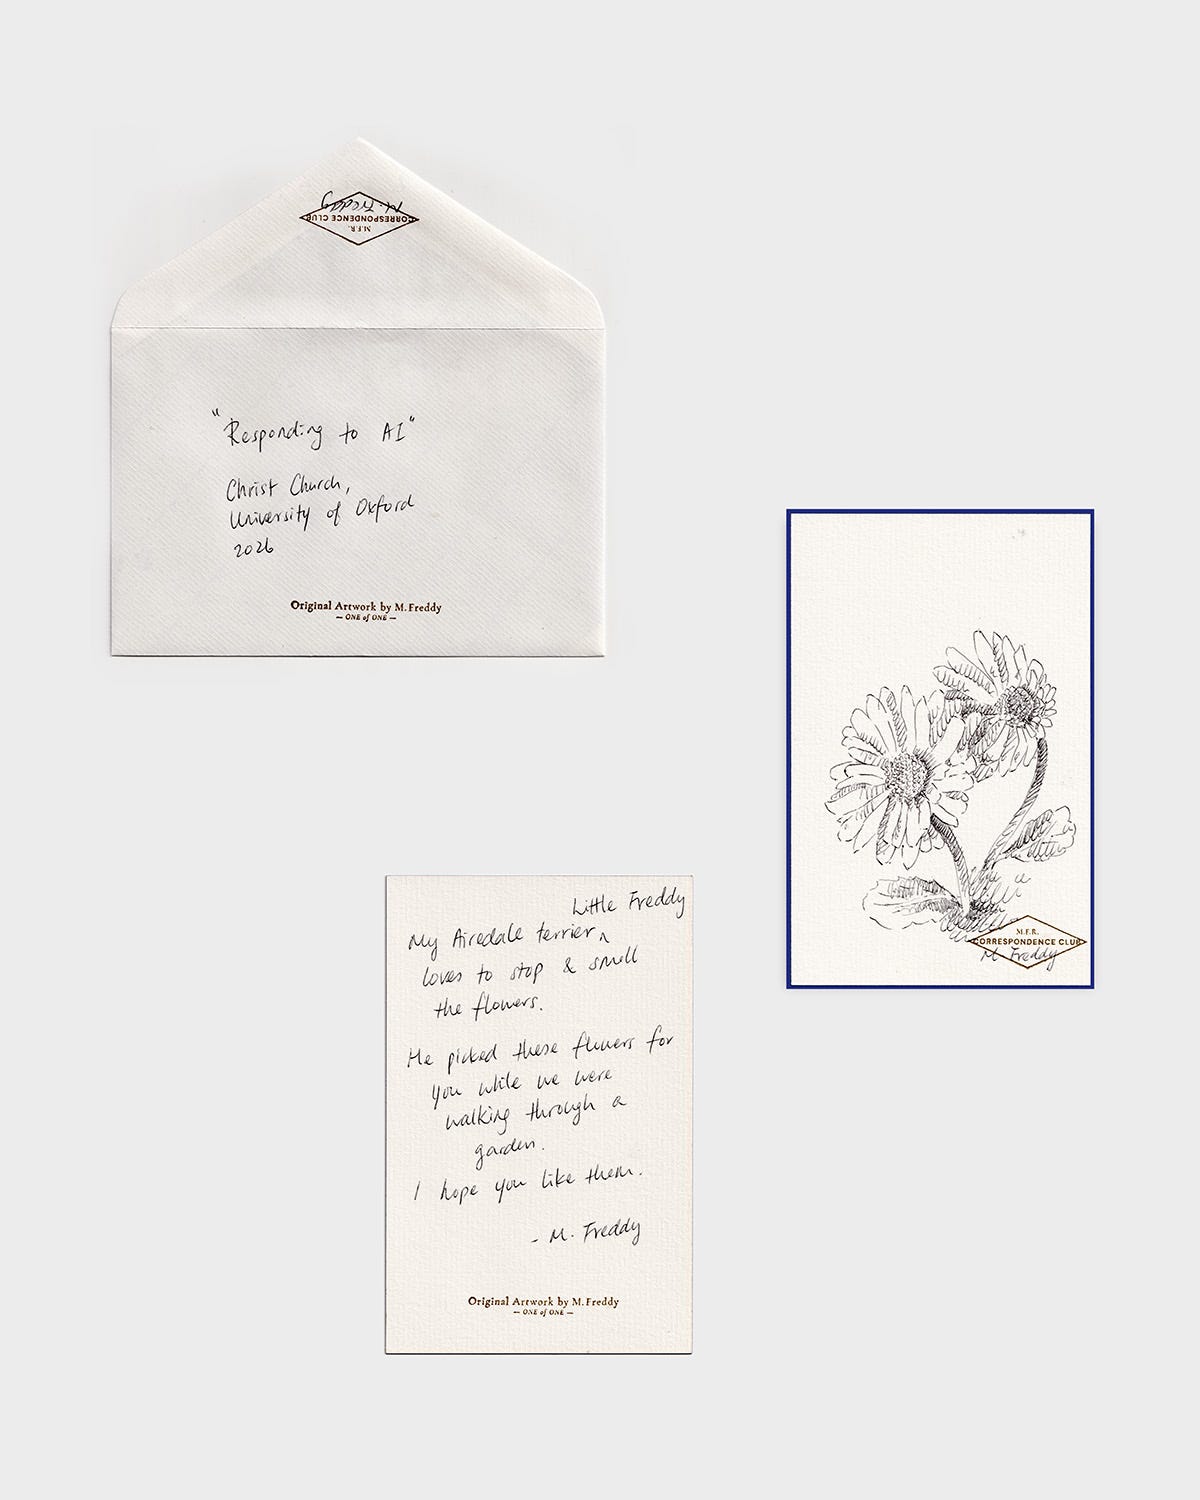 M. Freddy
CORRESPONDENCE CLUB
M.F.R.
"Responding to AI"
Christ Church,
University of Oxford
2026
Original Artwork by M. Freddy
— ONE of ONE —
M.F.R.
CORRESPONDENCE CLUB
M Freddy
Little Freddy
My Airedale terrier ^
loves to stop & smell
the flowers.
He picked these flowers for
you while we were
walking through a
garden.
I hope you like them.
- M. Freddy
Original Artwork by M. Freddy
— ONE of ONE —